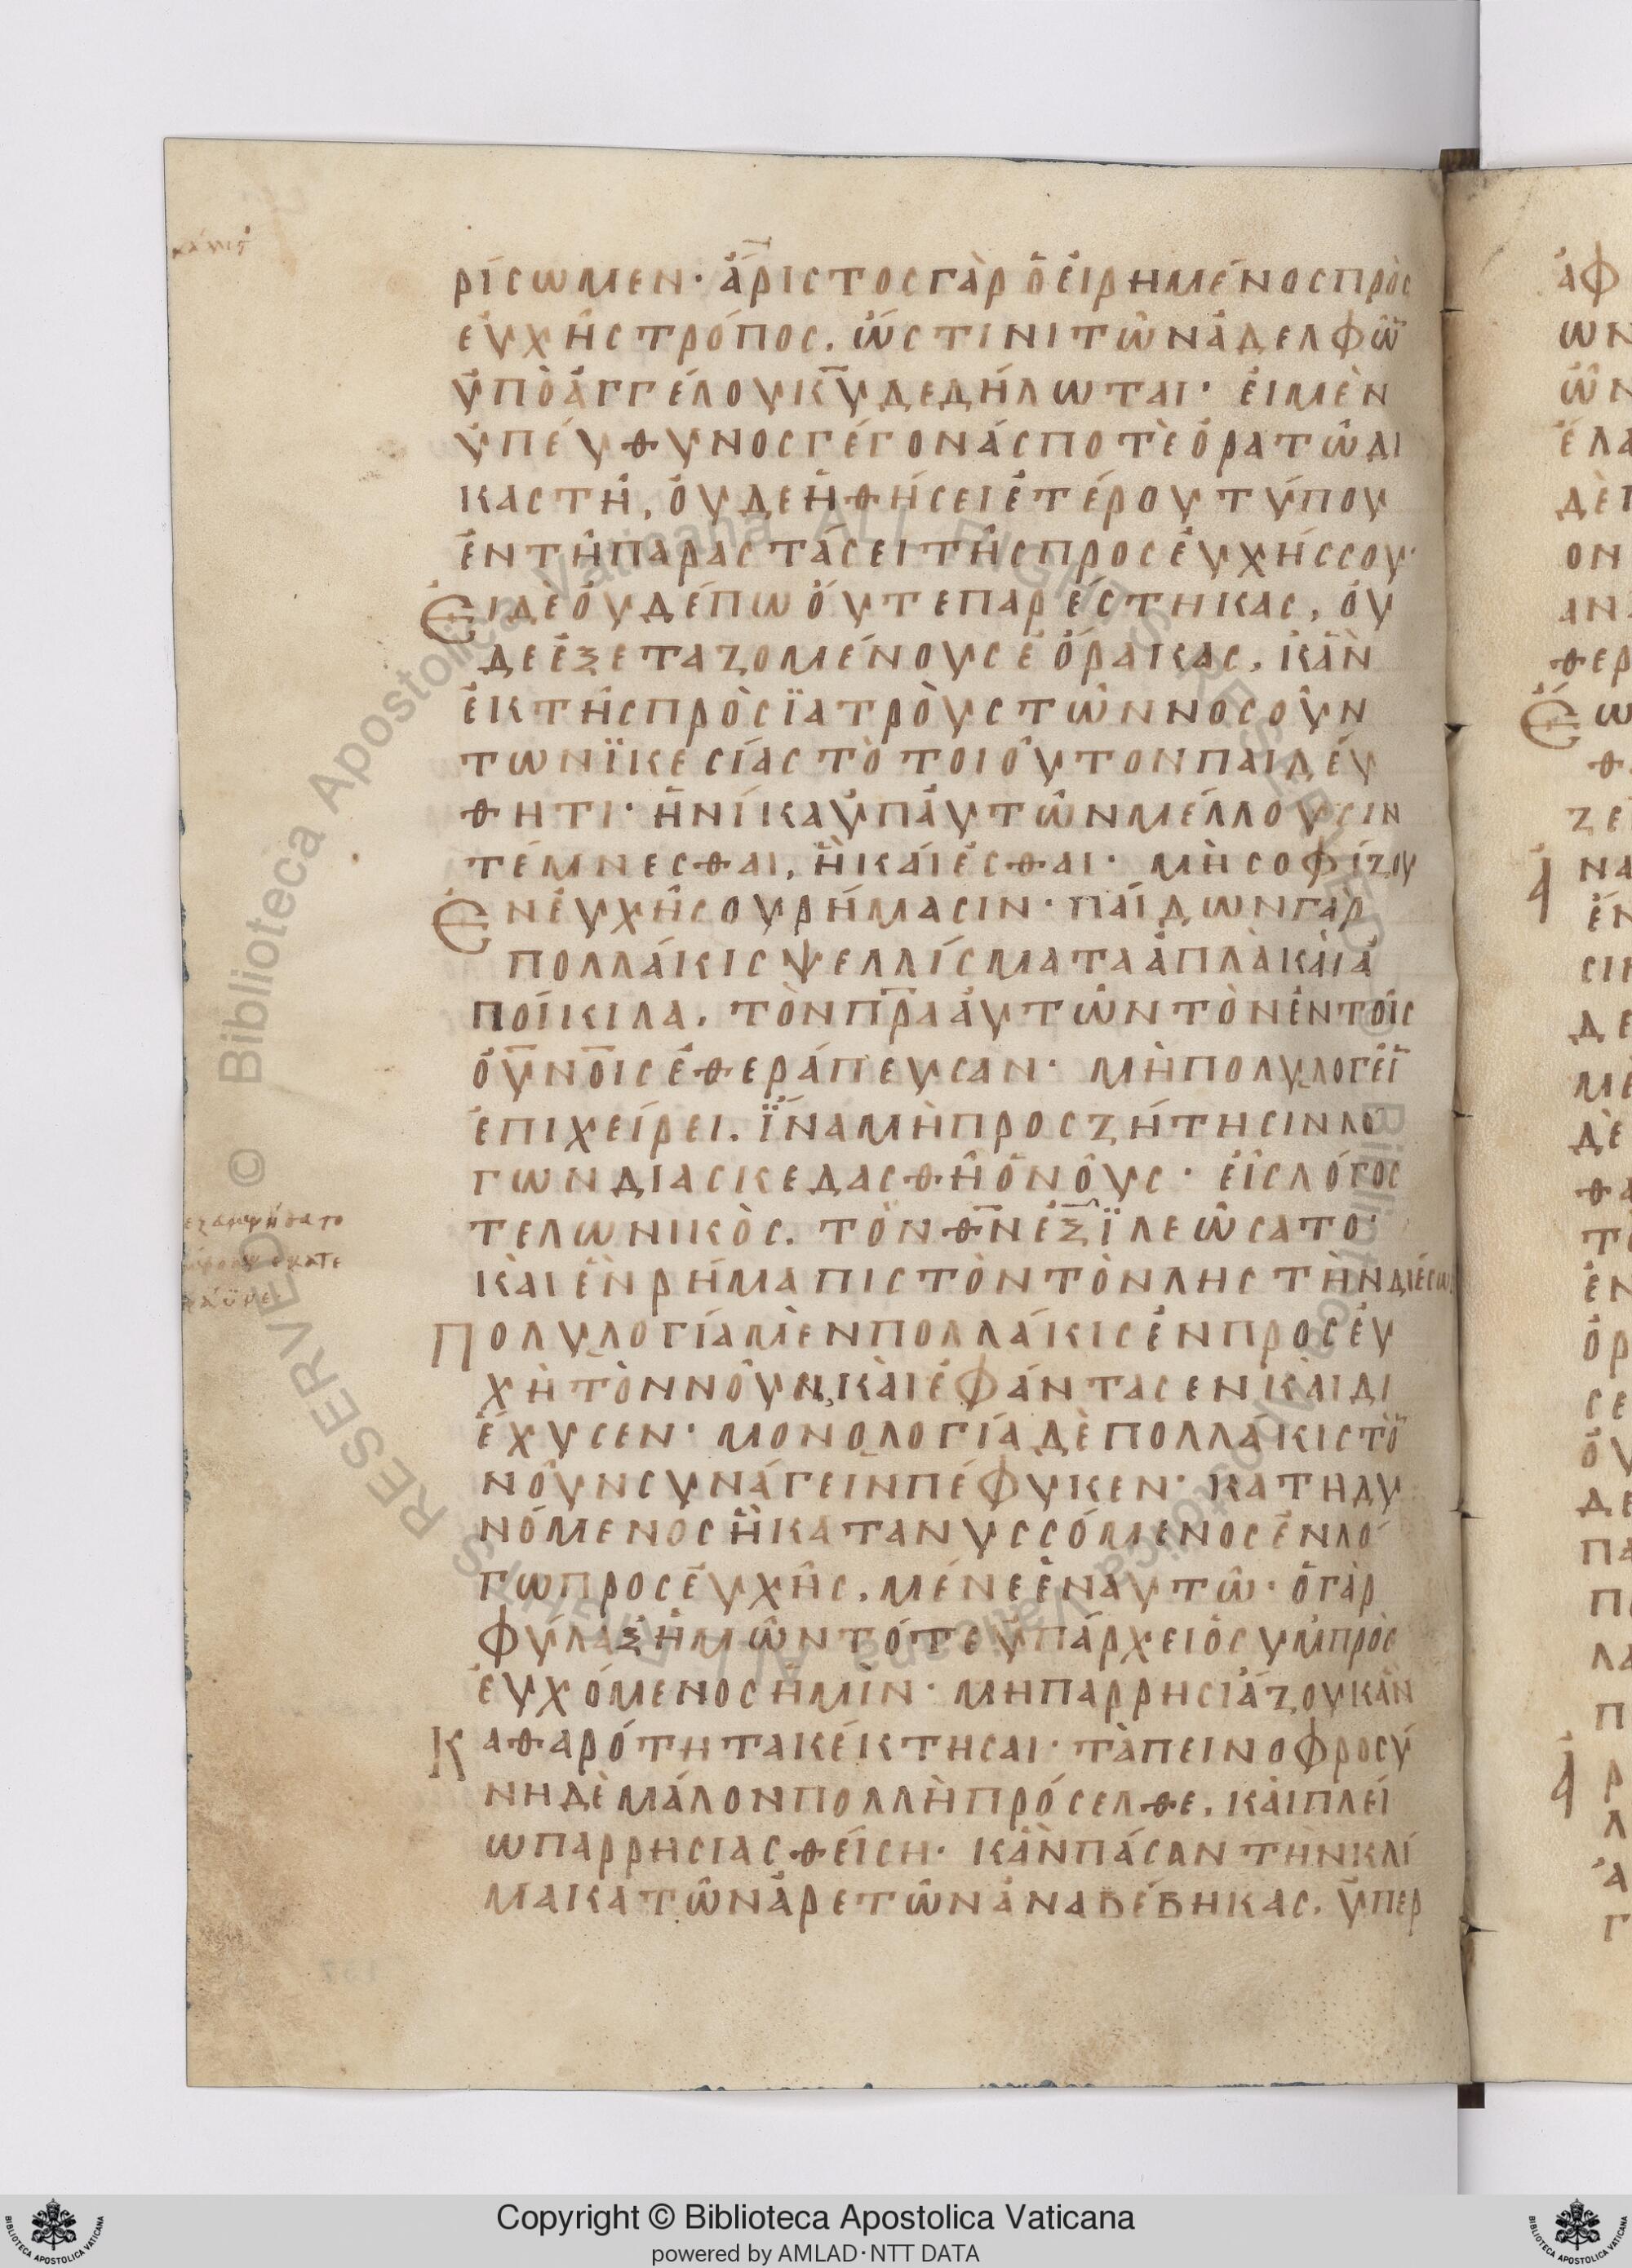 ρίσωμεν· ἄριστος γὰρ ὁ εἰρημένος πρὸς
εὐχῆς τρόπος. ὥς τινι τῶν ἀδελφῶ̅
ὑπὸ ἀγγέλου κ̅υ̅ δεδήλωται· εἰ μὲν
ὑπεύθυνος γέγονάς ποτὲ ὁρατῶ δι
καστῆ, οὐ δεηθήσει ἑτέρου τύπου
ἐν τῆ παραστάσει τῆς προσευχῆς σου·
Εἰ δὲ οὐδέπω οὔτε παρέστηκας, οὐ
δὲ ἐξεταζομένους ἑόρακας, κἂν
ἐκ τῆς πρὸς ϊατροὺς τῶν νοσούν
των ϊκεσίας τὸ τοιοῦτον παιδεύ
θητι· ἡνίκα ὑπ αὐτῶν μέλλουσιν
τέμνεσθαι, ἢ καίεσθαι· μὴ σοφίζου
Ἐν εὐχῆ σου ρήμασιν· παίδων γὰρ
πολλάκις ψελλίσματα ἁπλὰ καὶ ἀ
ποίκιλα, τὸν π̅ρ̅α αὐτῶν τὸν ἐν τοῖς
ο̅υ̅ν̅ο̅ις ἐθεράπευσαν· μὴ πολυλογεῖ̅
ἐπιχείρει. ἵνα μὴ πρὸς ζήτησιν λό
γων διασκεδασθῆ ὁ νοῦς· εἷς λόγος
τελωνικὸς. τὸν θ̅ν̅ ἐξϊλεώσατο·
καὶ ἓν ρῆμα πιστὸν τὸν ληστὴν διέσω
Πολυλογία μὲν πολλάκις ἐν προσευ
χῆ τὸν νοῦν, καὶ ἐφάντασεν καὶ δι
έχυσεν· μονολογία δὲ πολλάκις τὸ̅
νοῦν συνάγειν πέφυκεν· κατηδυ
νόμενος ἢ κατανυσσόμενος ἐν λό
γω προσευχῆς, μένε ἐν αυτῶ· ὁ γὰρ
φύλαξ ἡμῶν τότε ὑπάρχει ὁ συμπρὸσ
ευχόμενος ἡμῖν· μὴ παρρησιάζου κἂν
Καθαρότητα κέκτησαι· ταπεινοφροσύ
νη δὲ μάλον πολλῆ πρόσελθε, καὶ πλεί
ω παρρησίας θείση· κἂν πᾶσαν τὴν κλί
μακα τῶν ἀρετῶν ἀναβέβηκας, ὑπερ
© Biblioteca Apostolica Vaticana ALL RIGHTS RESERVED
Copyright © Biblioteca Apostolica Vaticana
powered by AMLAD·NTT DATA